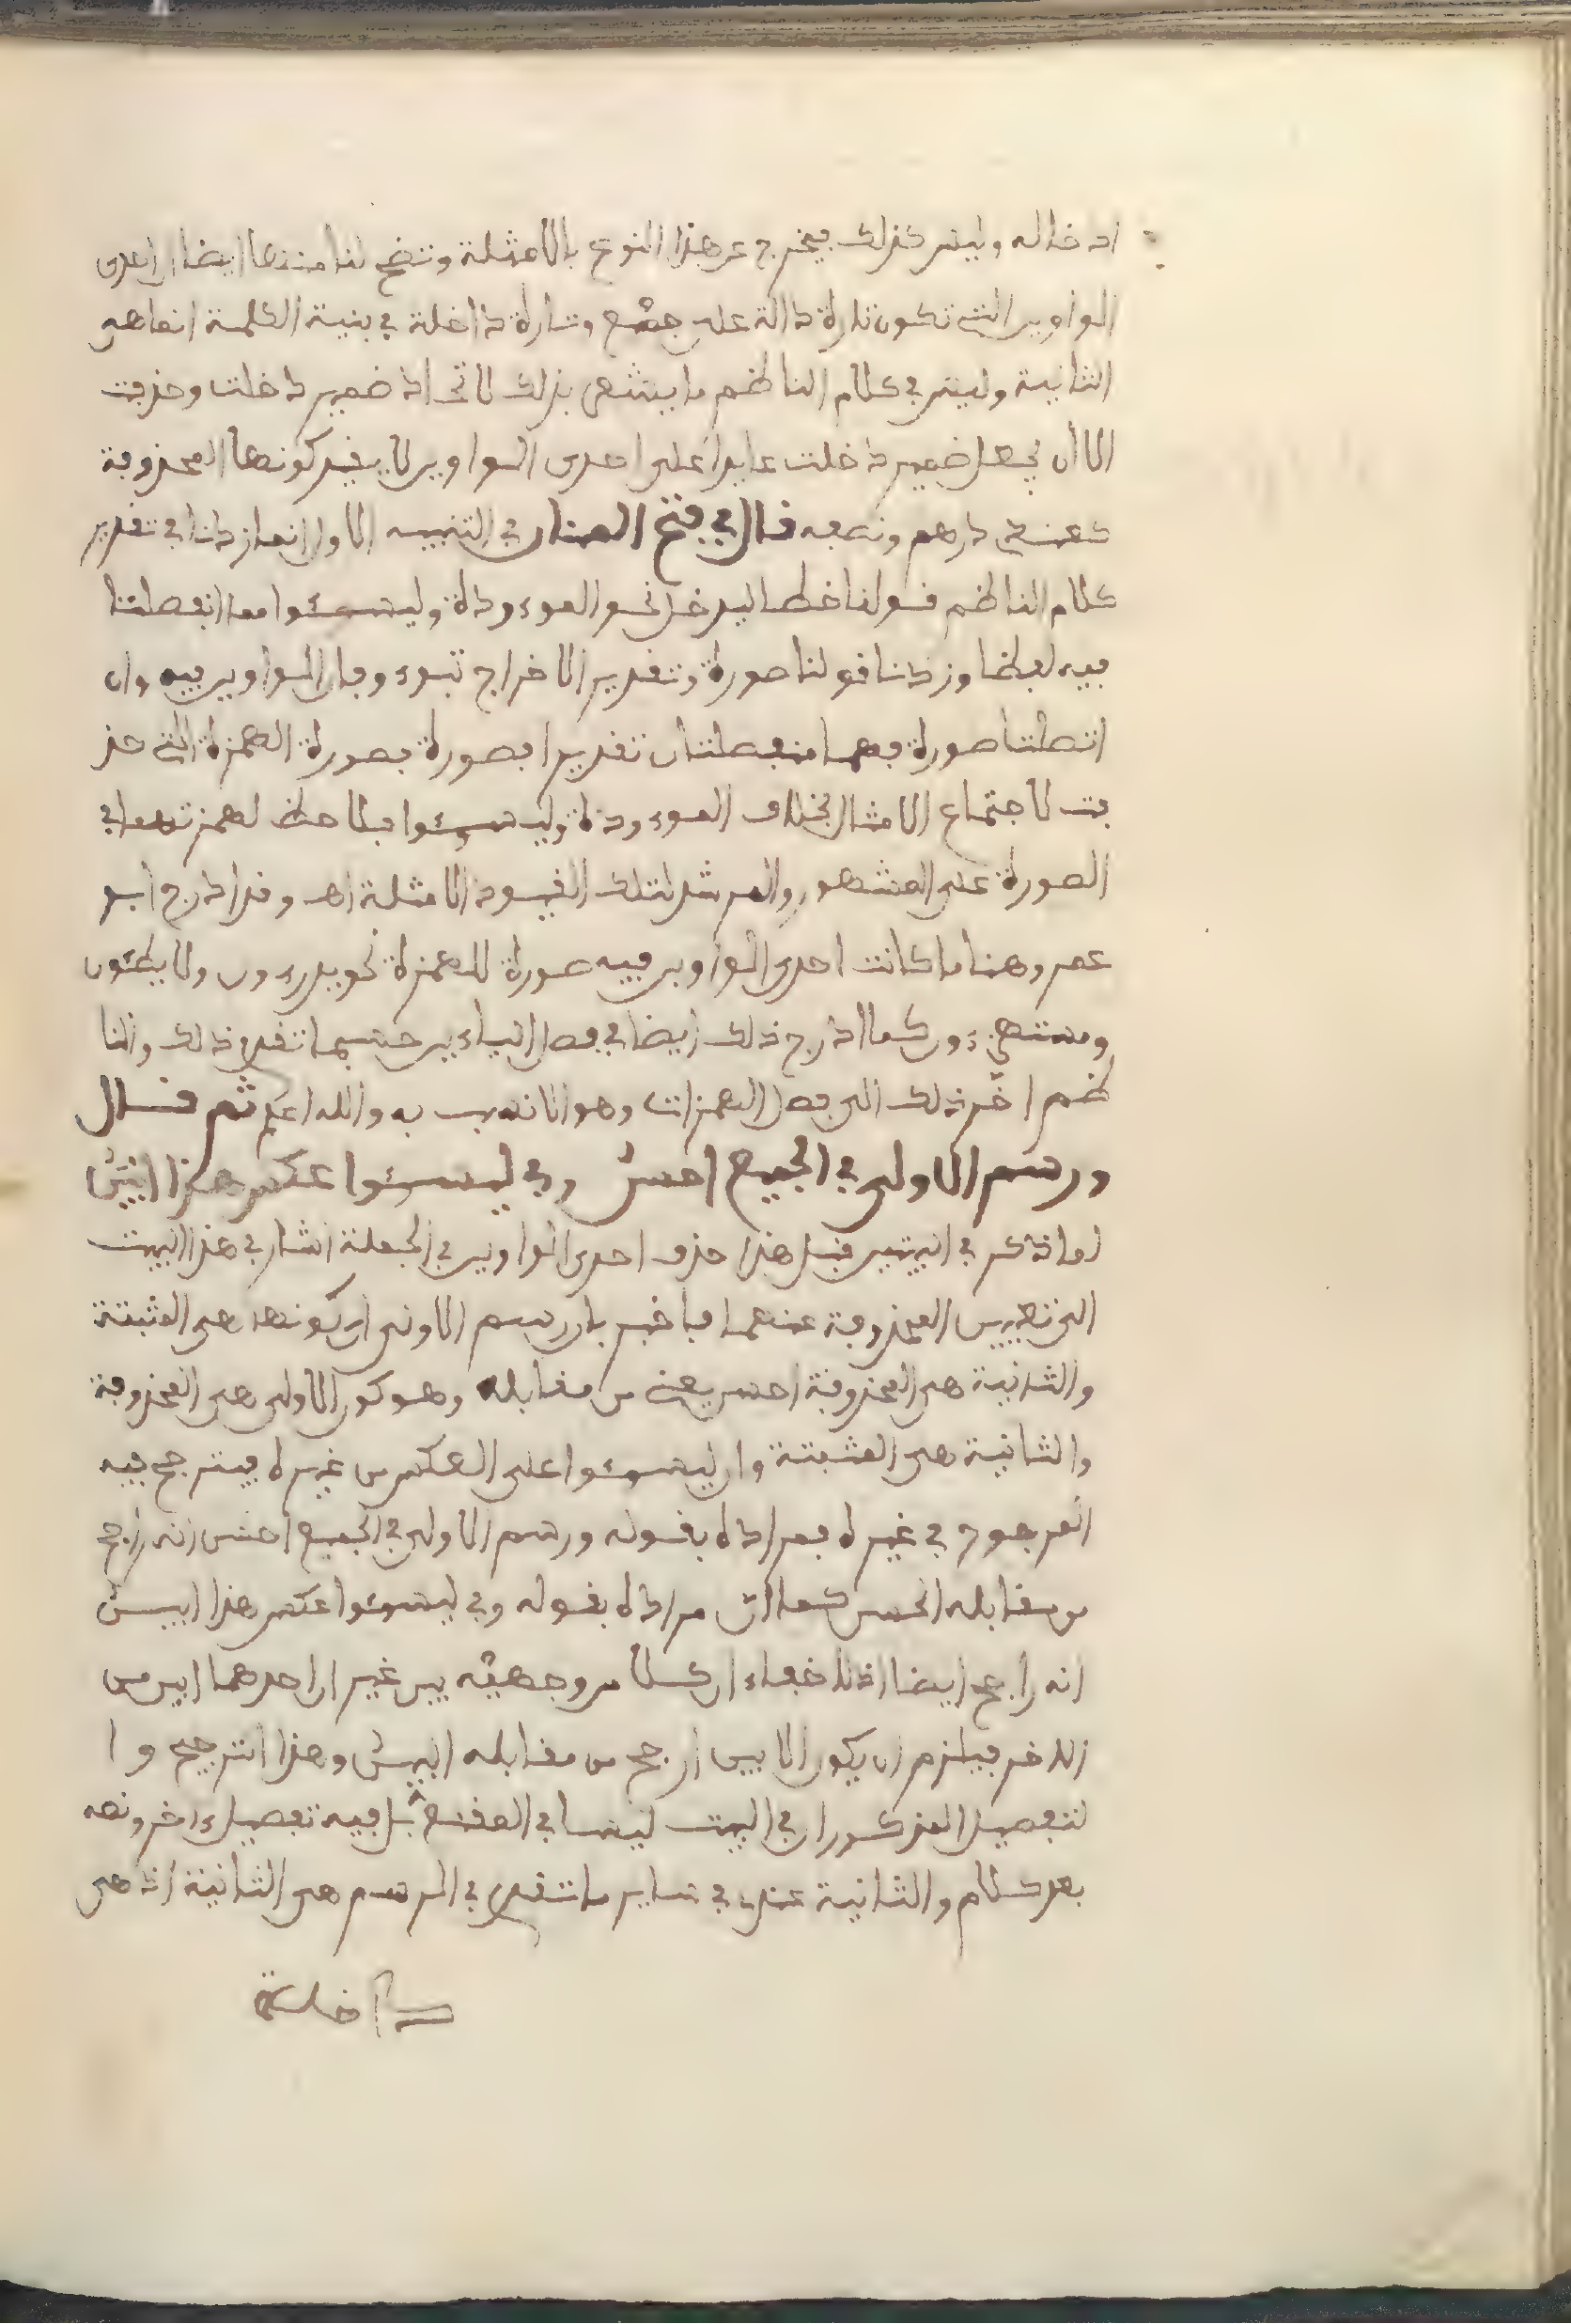 ادخاله وليس كذلك فيخرج عن هذا النوع بالامثلة وتتضح لنا منها ايضا ان احدى
الواوين التي تكون تارة دالة على جمع وتارة داخلة في بنية الكلمة انما هي
الثانية وليس في كلام الناظم ما يشعر بذلك لاتحاد ضمير دخلت وحذفت
الا ان يجعل ضمير دخلت عايدا على احدى الواوين لا بقيد كونها المحذوفة
كعندي درهم ونصفه قال في فتح المنان في التنبيه الاول انما زدنا في تقدير
كلام الناظم قولنا خطا ليدخل نحو الموءودة وليسـوءوا مما انفصلتا
فيه لفظا وزدنا قولنا صورة وتقدير الاخراج تبوءو فان الواوين فيه وان
اتصلتا صورة فهما منفصلتان تقديرا بصورة فصورة الهمزة التي حذ
فت لاجتماع الامثال بخلاف الموءودة وليسـوءوا فلا حظ لهمزتهما في
الصورة على المشهور والمرشد لتلك القيود الامثلة اهـ وقد ادرج ابو
عمرو هنا ما كانت احدى الواوين فيه صورة للهمزة نحو يدرءون ولا يطئون
ومستهزءون كما ادرج ذلك ايضا في فصل الياءين حسبما تقدم ذلك والنا
ظم اخر ذلك الى فصل الهمزات وهو الانسب به والله اعلم ثم قال
ورسم الاولى في الجميع احسن وفي ليسـوءوا عكس هذا ابين
لما ذكر في البيتين قبل هذا حذف احدى الواوين في الجملة اشار في هذا البيت
الى تعيين المحذوفة منهما فاخبر بان رسم الاولى اي كونها هي المثبتة
والثانية هي المحذوفة احسن يعني من مقابله وهو كون الاولى هي المحذوفة
والثانية هي المثبتة وان ليسـوءوا على العكس من غيره فيترجح فيه
المرجوح في غيره فمراده بقوله ورسم الاولى في الجميع احسن انه ارجح
من مقابله الحسن كما ان مراده بقوله وفي ليسـوءوا عكس هذا ابين
انه راجح ايضا اذ لا خفاء ان كلا من وجهيه بين غير ان احدهما ابين من
الاخر فيلزم ان يكون الابين ارجح من مقابله البين وهذا الترجيح وا
لتفصيل المذكوران في البيت ليسا في المقنع بل فيه تفصيل ءاخر ونصه
بعد كلام والثانية عندي في ساير ما تقدم في الرسم هي الثانية اذ هي
داخلة